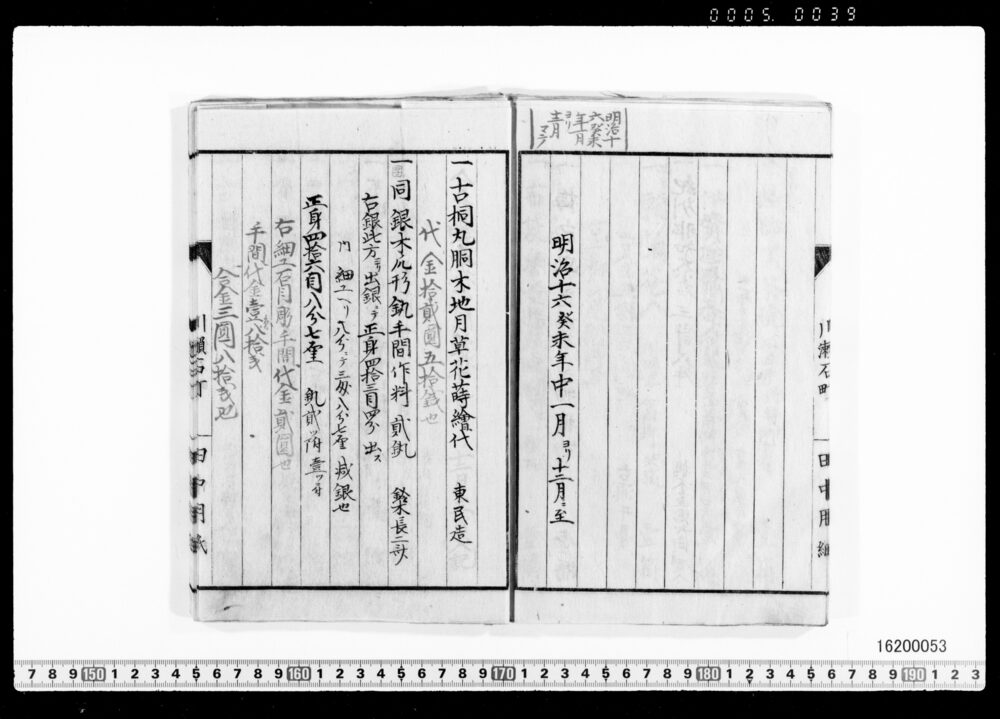 0005. 0039
明治十
六癸未
年一月
ヨリ
十二月
マテ
明治十六癸未年中一月ヨリ十二月ニ至
川瀬石町
田中用紙
一古桐丸胴木地月草花蒔繪代 東民造
代金拾貳圓五拾銭也
一同銀木瓜形釻手間作料 貳釻 鈴木長二郎
右銀此方ヨリ出銀ニテ正身四拾三匁四分出ス
内細工ヘリ八分ニテ三匁八分七厘減銀也
正身四拾六匁八分七厘 釻貳ツ 附壹ツ分
右細工石目彫手間代金貳圓也
手間代金壹 八拾戋
合金三圓八拾戋也
川瀬石町
田中用紙
16200053
7 8 9 150 1 2 3 4 5 6 7 8 9 160 1 2 3 4 5 6 7 8 9 170 1 2 3 4 5 6 7 8 9 180 1 2 3 4 5 6 7 8 9 190 1 2 3